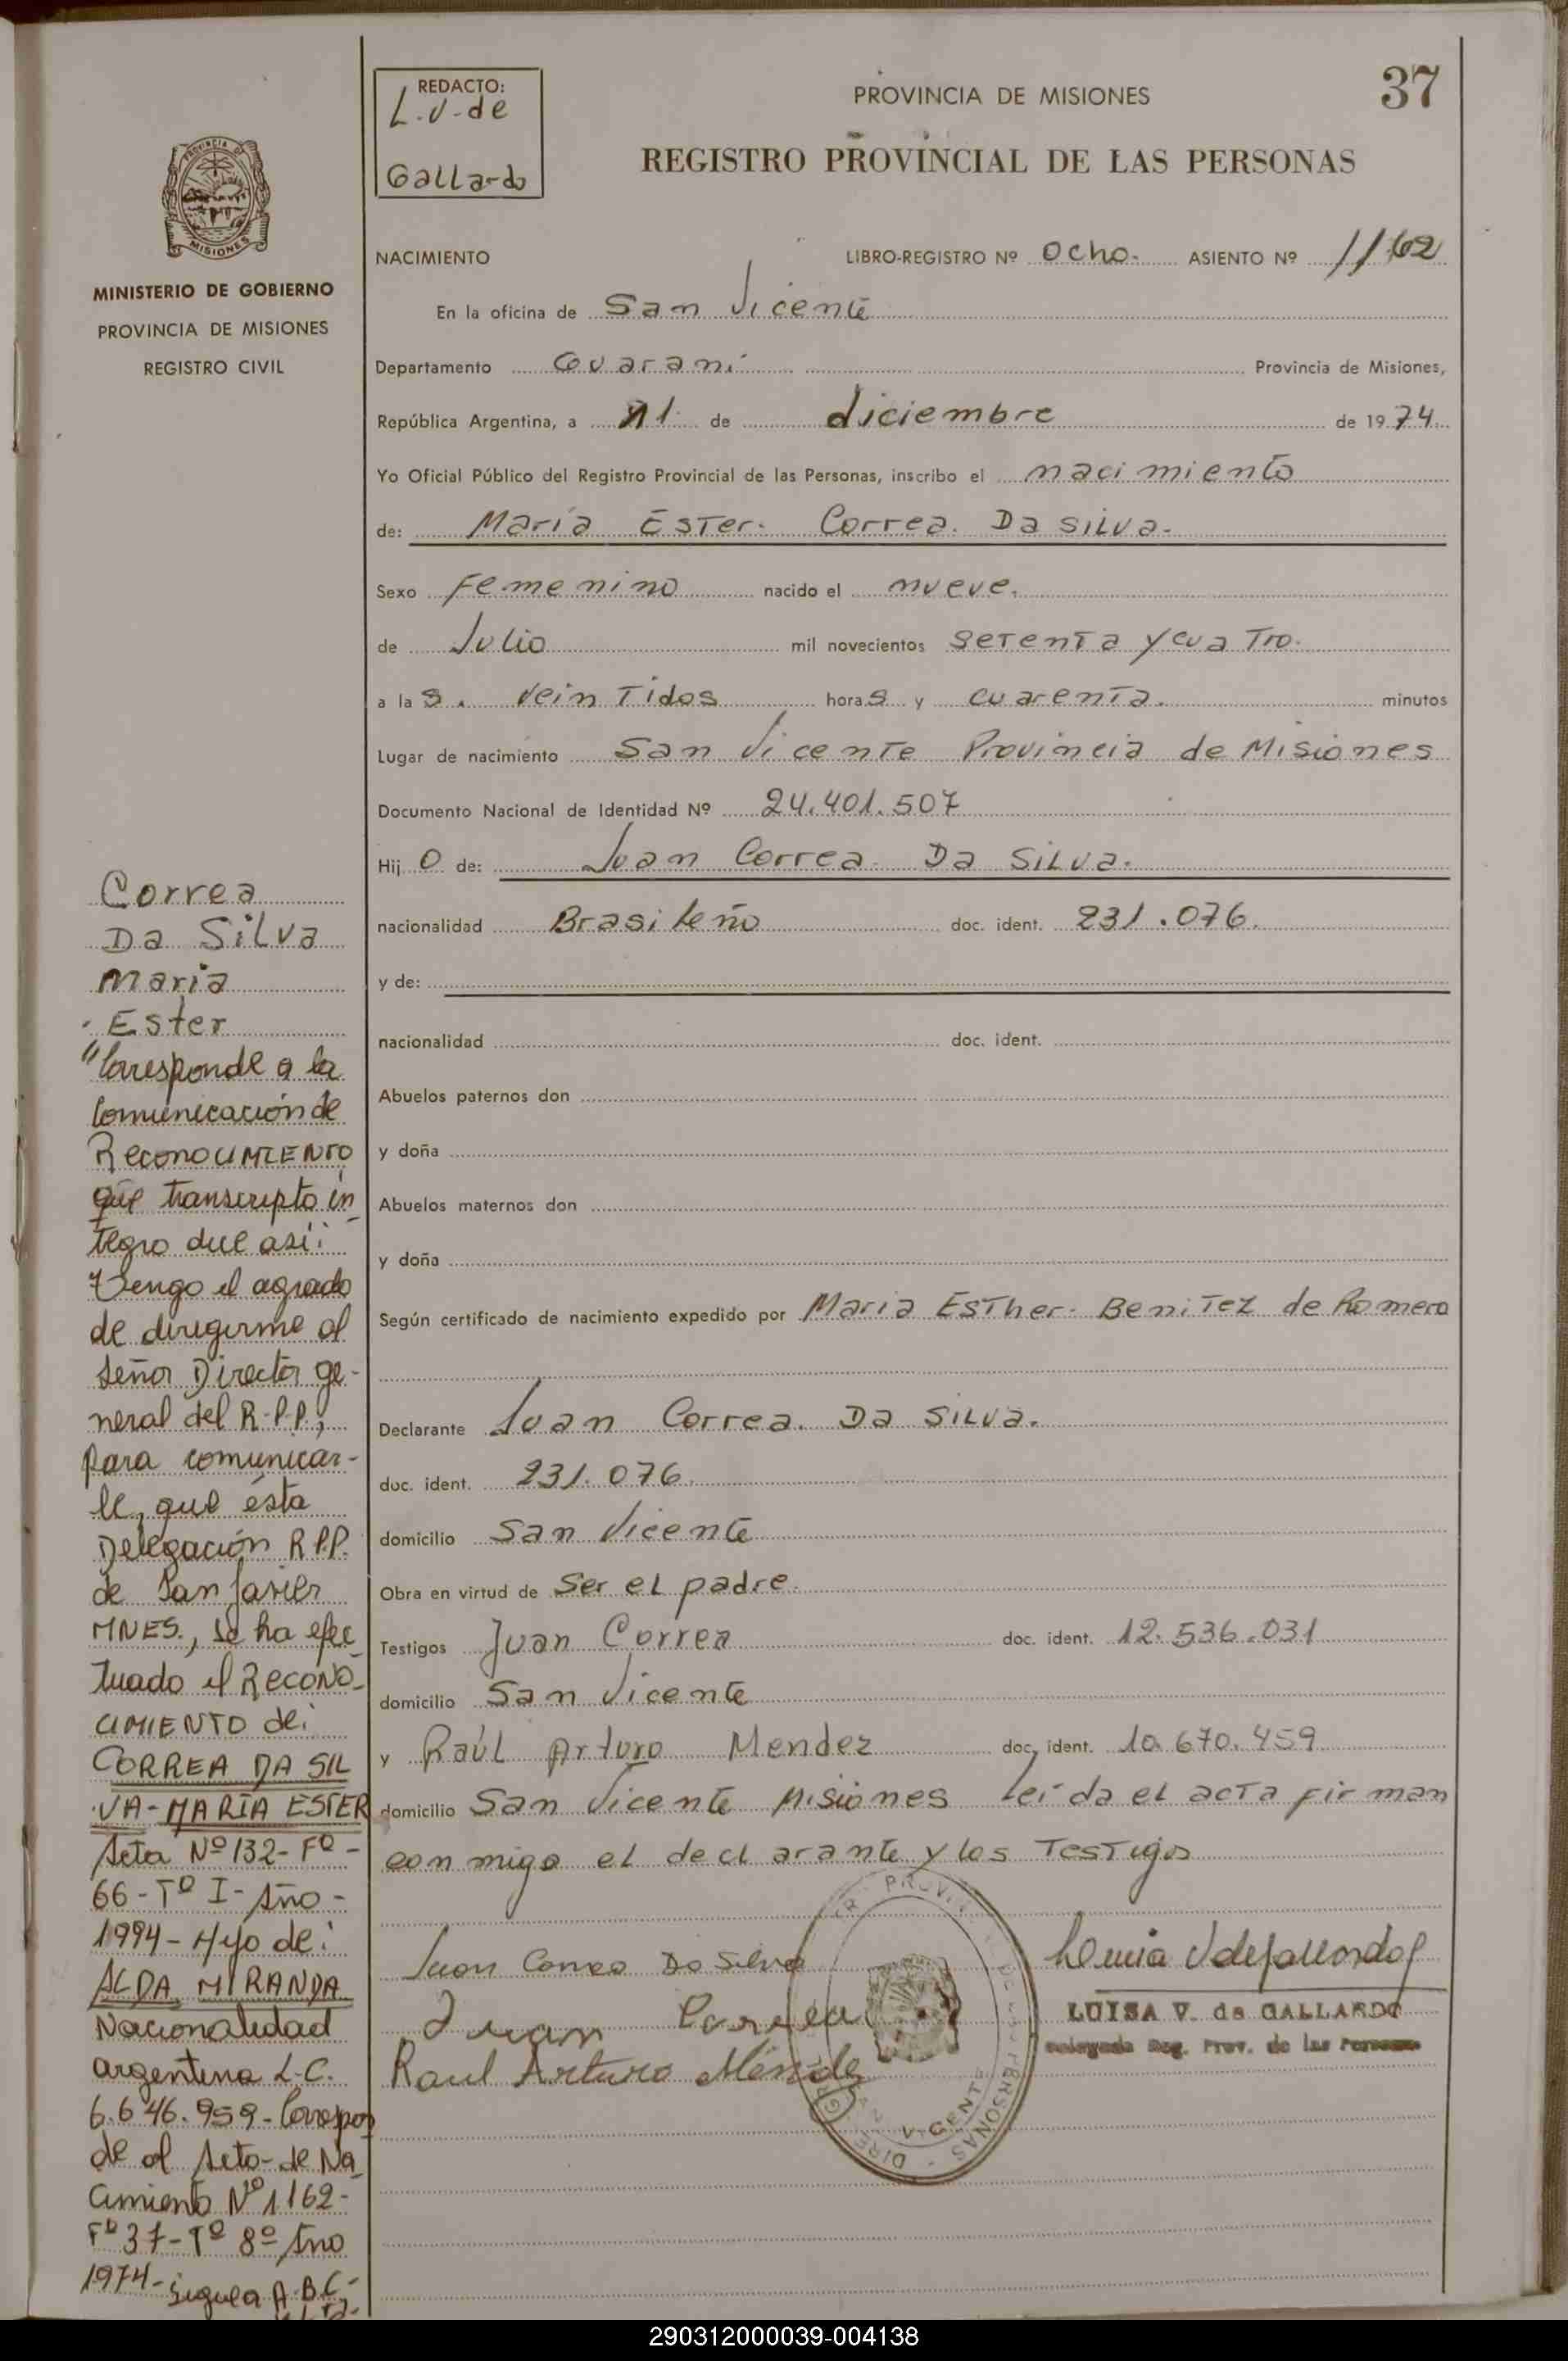 REDACTO:
L. V. de
Gallardo
PROVINCIA DE MISIONES
37
REGISTRO PROVINCIAL DE LAS PERSONAS
PROVINCIA DE
MISIONES
MINISTERIO DE GOBIERNO
PROVINCIA DE MISIONES
REGISTRO CIVIL
NACIMIENTO LIBRO-REGISTRO Nº ocho. ASIENTO Nº 1162
En la oficina de San Vicente
Departamento Guaraní Provincia de Misiones,
República Argentina, a 11 de diciembre de 1974
Yo Oficial Público del Registro Provincial de las Personas, inscribo el nacimiento
de: María Ester. Correa. Da Silva.
Sexo Femenino nacido el nueve.
de Julio mil novecientos setenta y cuatro.
a las. Veintidos horas y cuarenta. minutos
Lugar de nacimiento San Vicente Provincia de Misiones
Documento Nacional de Identidad Nº 24.401.507
Hijo de: Juan Correa. Da Silva.
nacionalidad Brasileño doc. ident. 231.076.
y de:
nacionalidad doc. ident.
Abuelos paternos don
y doña
Abuelos maternos don
y doña
Según certificado de nacimiento expedido por Maria Esther. Benitez de Romero
Declarante Juan Correa. Da Silva.
doc. ident. 231.076.
domicilio San Vicente
Obra en virtud de Ser el padre.
Testigos Juan Correa doc. ident. 12.536.031
domicilio San Vicente
y Raúl Arturo Mendez doc. ident. 10.670.459
domicilio San Vicente Misiones Leída el acta firman
conmigo el declarante y los Testigos
Juan Correa Da Silva
Juan Correa
Raul Arturo Méndez
LUISA V. de GALLARDO
Delegada Reg. Prov. de las Personas
Correa
Da Silva
Maria
Ester
"Corresponde a la
Comunicación de
RECONOCIMIENTO
que transcripto in
tegro dice así:
Tengo el agrado
de dirigirme al
Señor Director ge-
neral del R.P.P.,
para comunicar-
le, que ésta
Delegación R.P.P.
de San Javier
MNES., se ha efec
tuado el RECONO-
CIMIENTO de:
CORREA DA SIL
VA-MARIA ESTER
Acta Nº 132-Fº-
66-Tº I-Año-
1994-Hijo de:
ALDA MIRANDA
Nacionalidad
argentina L.C.
6.646.959-Correspon
de al Acta-de Na
cimiento Nº 1162-
Fº 37-Tº 8º Año
1974-
Sigue la A.B.C-
290312000039-004138